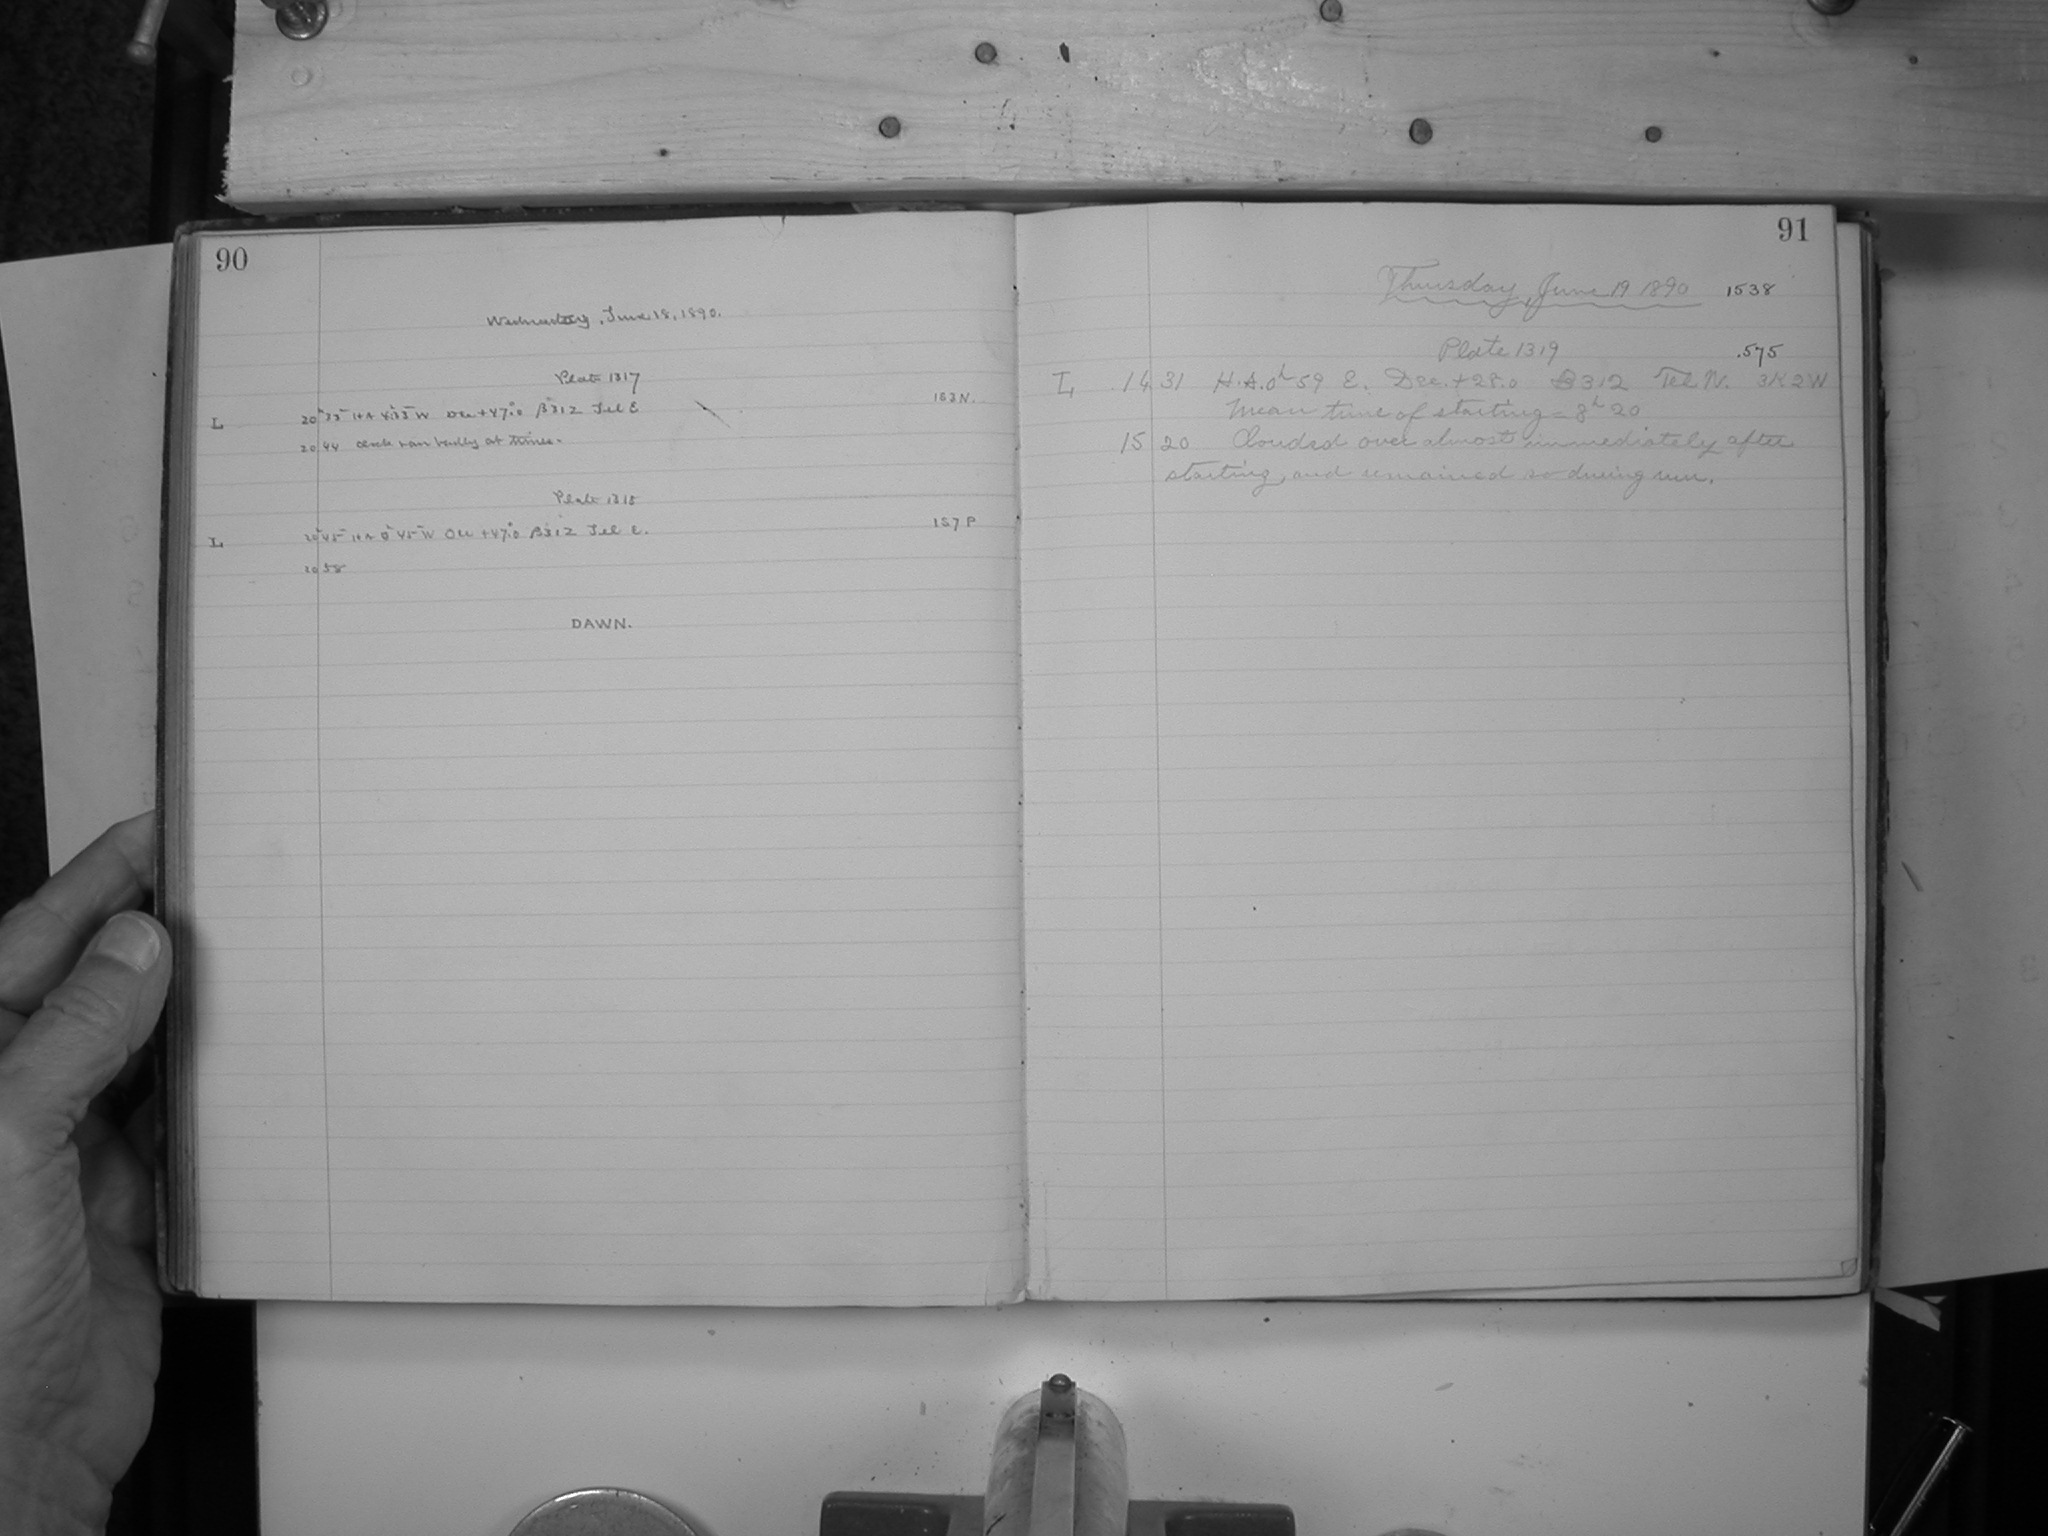 90
Wednesday, June 18, 1890.
Plate 1317
L 20 35 HA 4 33 W Dec +47°.0 B312 Tel E 183 N.
20 44 clock ran badly at times.
Plate 1318
L 20 45 HA 0 45 W Dec +47°.0 B312 Tel E. 187 P
20 58
DAWN.
91
Thursday, June 19 1890 1538
Plate 1319 .575
L 14 31 H.A. 0h 59 E. Dec. +28.0 B312 Tel. W. 3K2W
Mean time of starting = 8h 20
15 20 Clouded over almost immediately after
starting, and remained so during run.